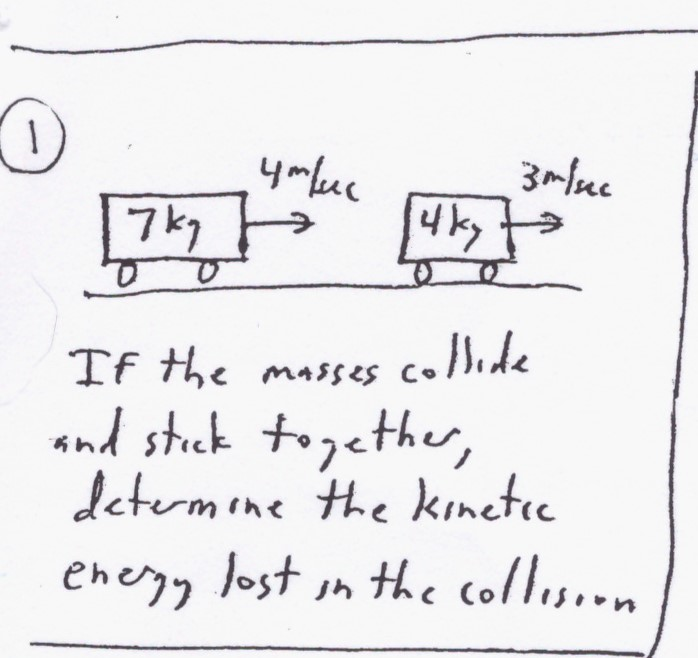 1
4m/sec 3m/sec
7kg 4kg
If the masses collide
and stick together,
determine the kinetic
energy lost in the collision